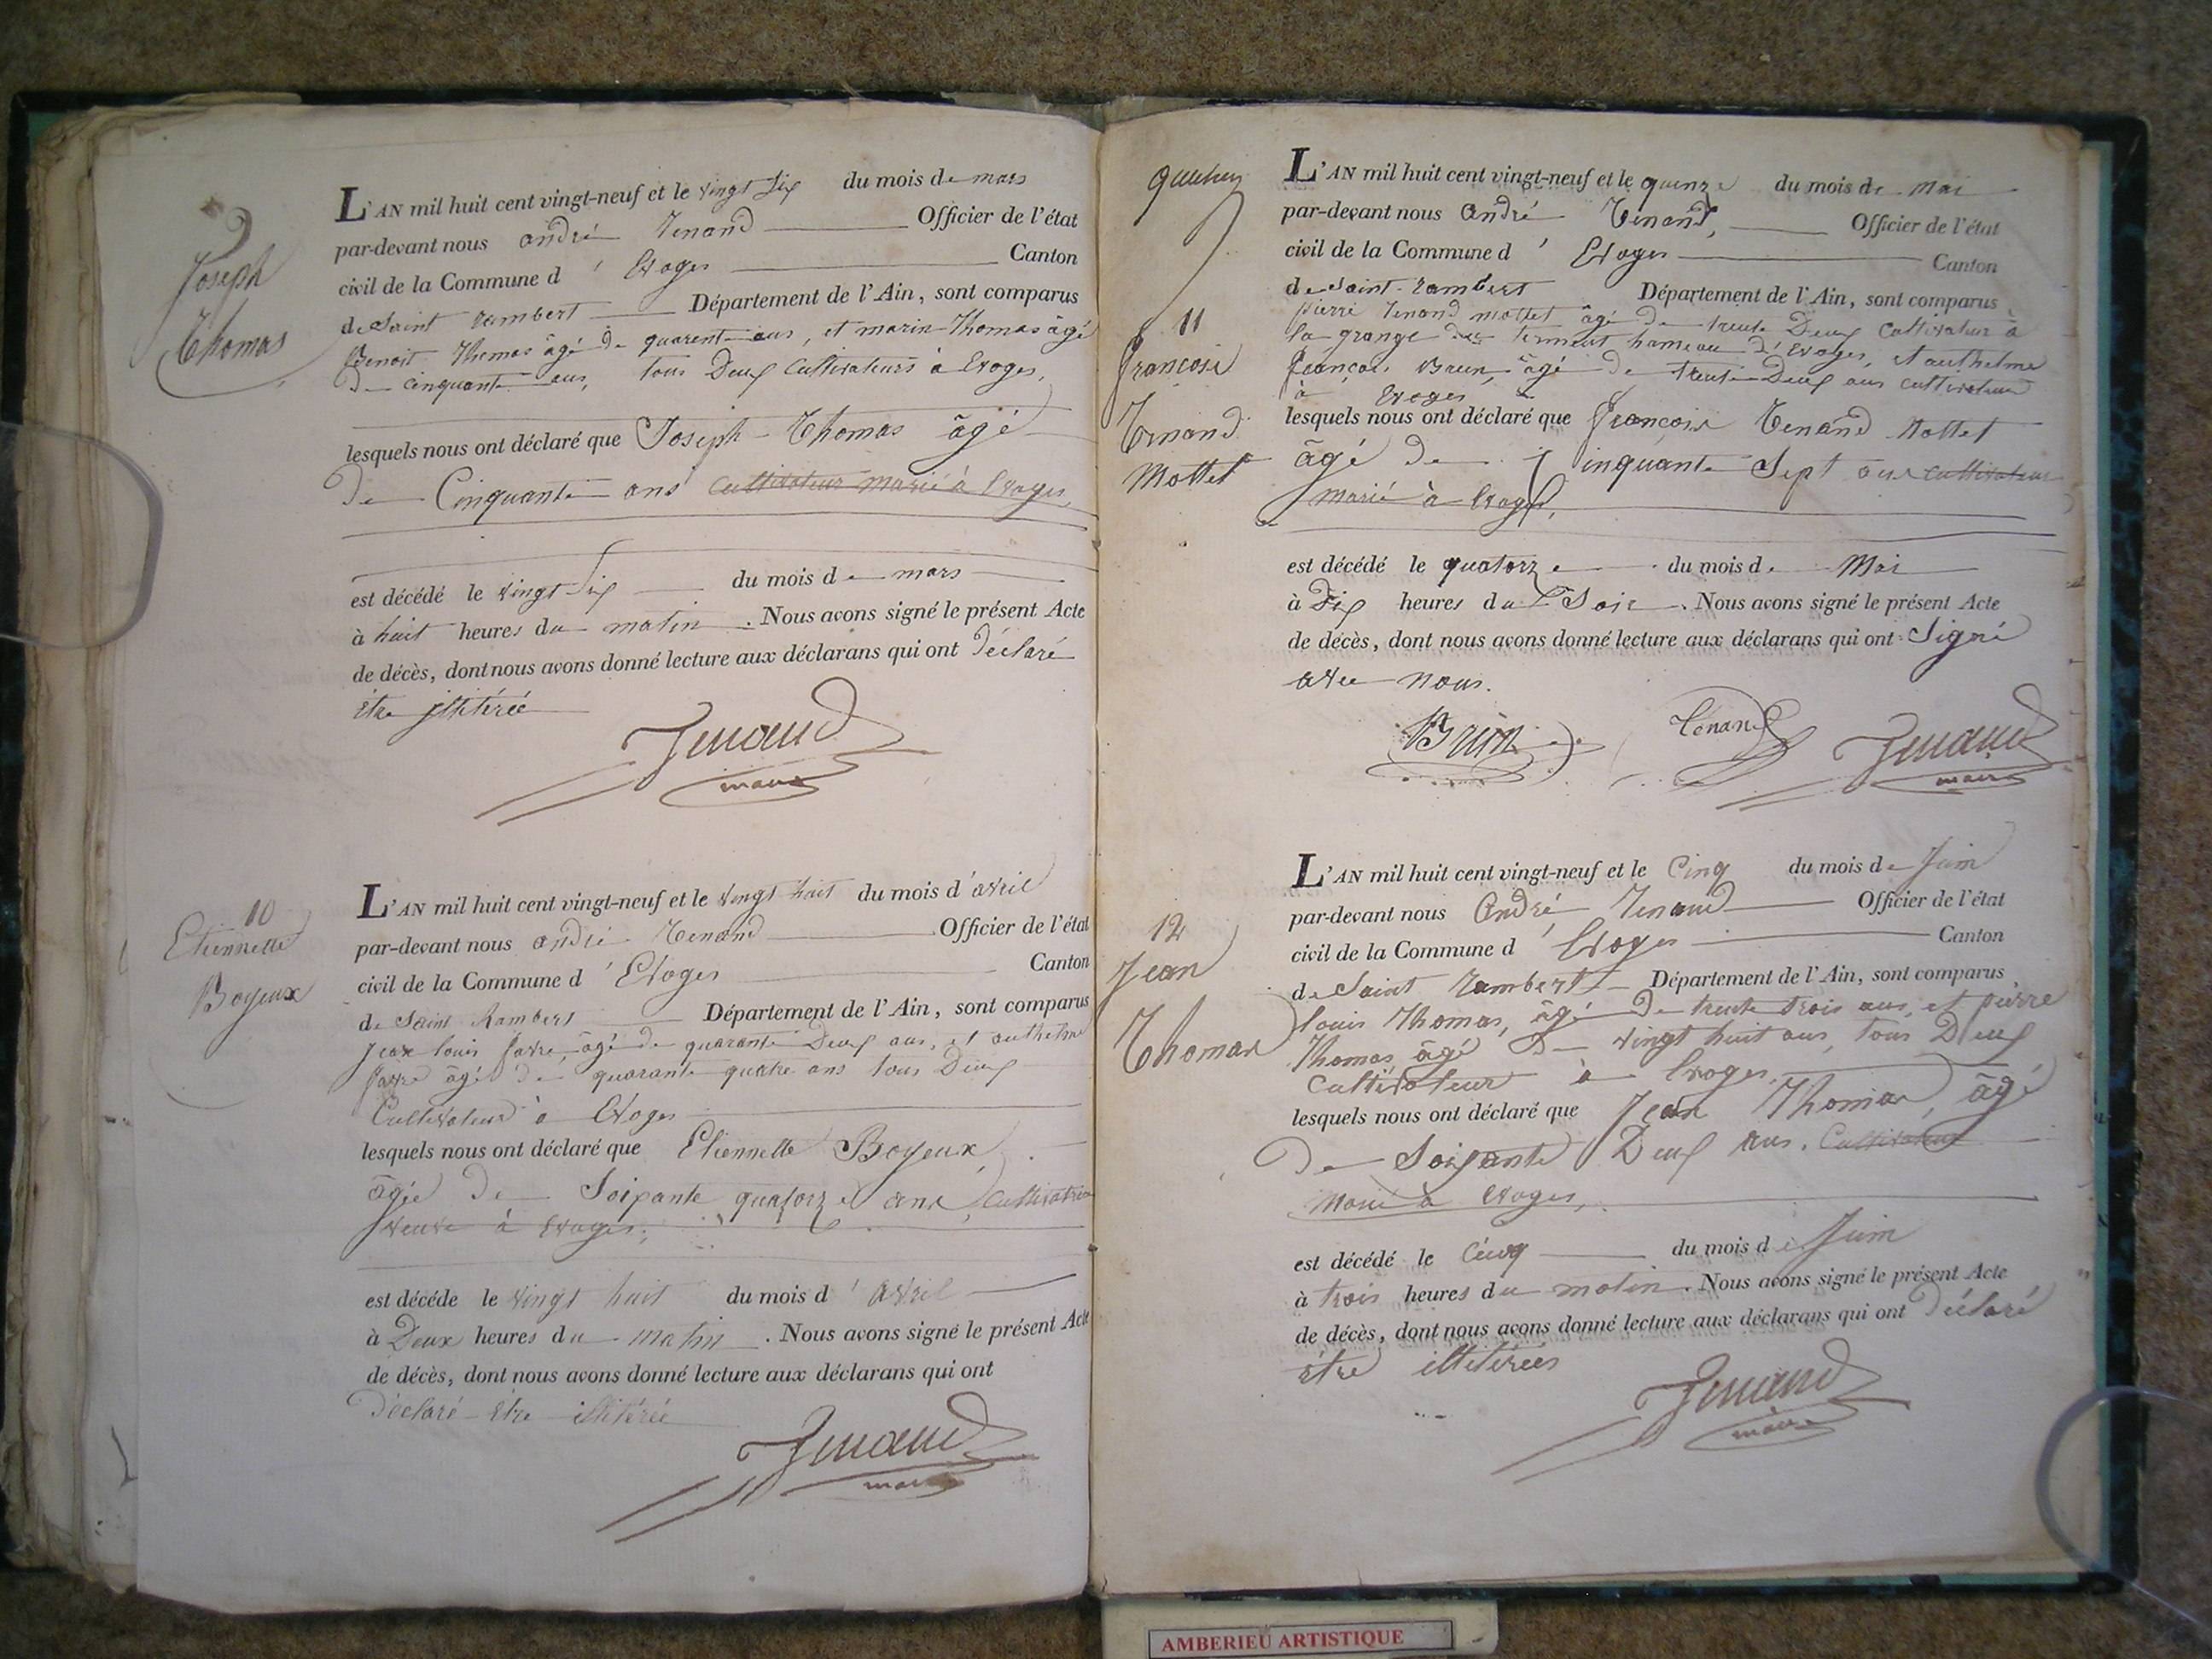 9
Joseph
Thomas
L'AN mil huit cent vingt-neuf et le vingt six du mois de mars
par-devant nous andré Tenand Officier de l'état
civil de la Commune d' Evoges Canton
de Saint rambert Département de l'Ain, sont comparus
Benoit Thomas âgé de quarente ans, et marin Thomas âgé
de cinquante ans, tous Deux Cultivateurs à Evoges,
lesquels nous ont déclaré que Joseph Thomas âgé
De Cinquante ans cultivateur marié à Evoges
est décédé le vingt six du mois de mars
à huit heures du matin. Nous avons signé le présent Acte
de décès, dont nous avons donné lecture aux déclarans qui ont Déclaré
être illitérée
Tenand
maire
10
Etiennette
Boyeux
L'AN mil huit cent vingt-neuf et le vingt huit du mois d'avril
par-devant nous andré Tenand Officier de l'état
civil de la Commune d' Evoges Canton
de Saint Rambert Département de l'Ain, sont comparus
Jean louis favre, âgé de quarante Deux ans, et anthelme
favre âgé de quarante quatre ans tous Deux
Cultivateur à Evoges
lesquels nous ont déclaré que Etiennette Boyeux,
âgée De Soixante quatorze ans, Cultivatrice
veuve à Evoges,
est décéde le vingt huit du mois d' avril
à Deux heures du matin. Nous avons signé le présent Acte
de décès, dont nous avons donné lecture aux déclarans qui ont
Déclaré être illitérée
Tenand
maire
11
françois
Tenand
Mottet
L'AN mil huit cent vingt-neuf et le quinze du mois de mai
par-devant nous andré Tenand, Officier de l'état
civil de la Commune d' Evoges Canton
de Saint-rambert Département de l'Ain, sont comparus
pierre Tenand mottet âgé de trente Deux Cultivateur à
la grange hameau d'Evoges, et anthelme
françois Brun, âgé de trente Deux ans cultivateur
à Evoges
lesquels nous ont déclaré que françois Tenand Mottet
âgé De Cinquante Sept ans cultivateur
marié à Evoges,
est décédé le quatorze du mois de Mai
à Dix heures du Soir. Nous avons signé le présent Acte
de décès, dont nous avons donné lecture aux déclarans qui ont Signé
avec nous.
Brun Tenand Tenand
maire
12
Jean
Thomas
L'AN mil huit cent vingt-neuf et le Cinq du mois de Juin
par-devant nous André Tenand Officier de l'état
civil de la Commune d' Evoges Canton
de Saint rambert Département de l'Ain, sont comparus
louis Thomas, âgé De trente trois ans, et pierre
Thomas, âgé De vingt huit ans, tous Deux
Cultivateur à Evoges,
lesquels nous ont déclaré que Jean Thomas, âgé
De Soixante Deux ans. Cultivateur
Marié à Evoges,
est décédé le Cinq du mois de Juin
à trois heures du matin. Nous avons signé le présent Acte
de décès, dont nous avons donné lecture aux déclarans qui ont Déclaré
être illitérées
Tenand
maire
AMBERIEU ARTISTIQUE